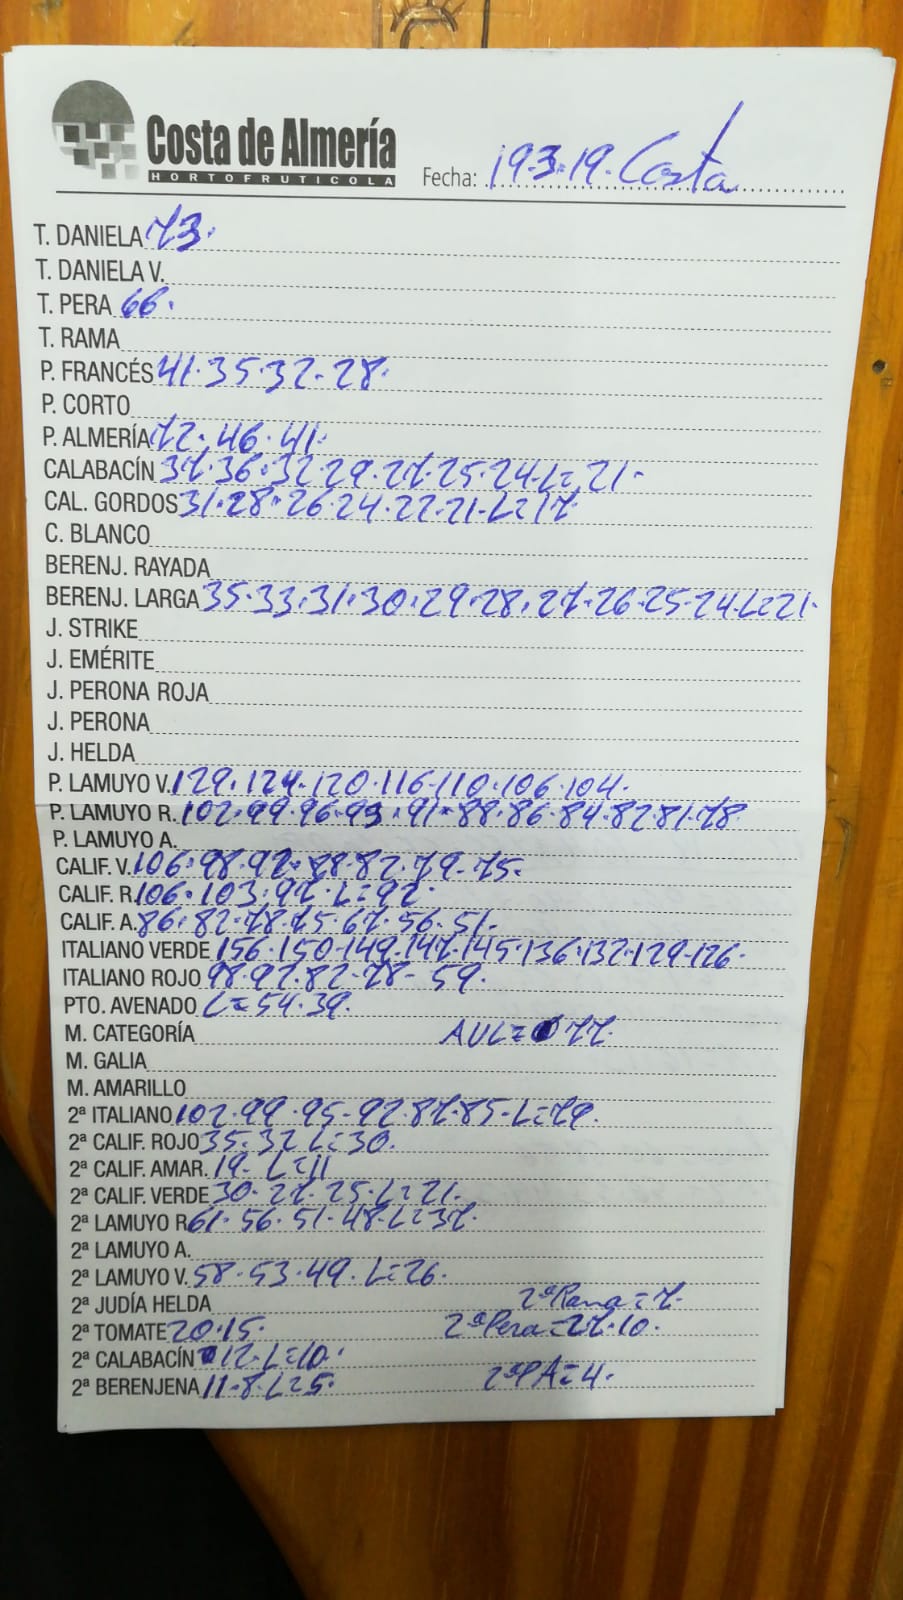 Costa de Almería
HORTOFRUTICOLA
Fecha: 19.3.19. Costa
T. DANIELA 73.
T. DANIELA V.
T. PERA 66.
T. RAMA
P. FRANCÉS 41.35.32.28.
P. CORTO
P. ALMERÍA 72.46.41.
CALABACÍN 37.36.32.29.27.25.24.L=21.
CAL. GORDOS 31.28.26.24.22.21.L=17.
C. BLANCO
BERENJ. RAYADA
BERENJ. LARGA 35.33.31.30.29.28.27.26.25.24.L=21.
J. STRIKE
J. EMÉRITE
J. PERONA ROJA
J. PERONA
J. HELDA
P. LAMUYO V. 129.124.120.116.110.106.104.
P. LAMUYO R. 102.99.96.93.91.88.86.84.82.81.78
P. LAMUYO A.
CALIF. V. 106.98.92.88.82.79.75.
CALIF. R. 106.103.97.L=92.
CALIF. A. 86.82.78.75.67.56.51.
ITALIANO VERDE 156.150.149.147.145.136.132.129.126.
ITALIANO ROJO 98.92.82.78.59.
PTO. AVENADO L=54.39.
M. CATEGORÍA AUL=77.
M. GALIA
M. AMARILLO
2ª ITALIANO 102.99.95.92.87.85.L=79.
2ª CALIF. ROJO 35.32 L=30.
2ª CALIF. AMAR. 19. L=11
2ª CALIF. VERDE 30.27.25.L=21.
2ª LAMUYO R 61.56.51.48.L=37.
2ª LAMUYO A.
2ª LAMUYO V. 58.53.49.L=26.
2ª JUDÍA HELDA 2ªRama=7.
2ª TOMATE 20.15. 2ªPera=27.10.
2ª CALABACÍN 12.L=10.
2ª BERENJENA 11.8.L=5. 2ªPA=4.